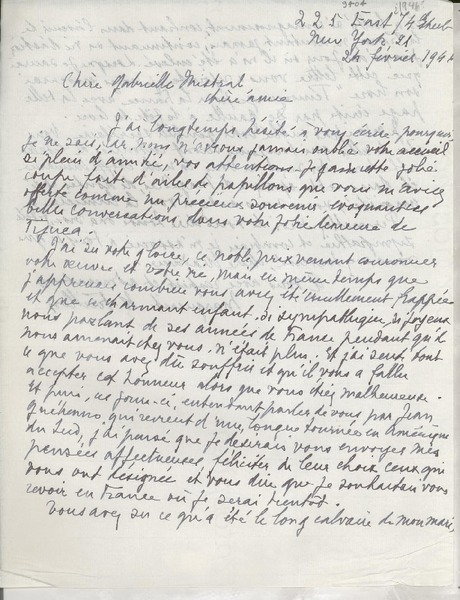 225 East 74th Street
New York 21
24 février 194
Chère Gabrielle Mistral,
chère amie
J'ai longtemps hésité à vous écrire - pourquoi
je ne sais, car nous n'avons jamais oublié votre accueil
si plein d'amitié, vos attentions - Je garde cette jolie
coupe faite d'ailes de papillons que vous m'aviez
offerte comme un précieux souvenir
belles conversations dans votre jolie demeure de
Tijuca.
J'ai su votre gloire, ce noble prix venant couronner
votre œuvre et votre vie, mais en même temps que
j'apprenais combien vous aviez été cruellement frappée
et que ce charmant enfant, si sympathique, si joyeux
nous parlant de ses années de France pendant qu'il
nous amenait chez vous, n'était plus. Et j'ai senti tout
ce que vous avez dû souffrir et qu'il vous a fallu
accepter cet honneur alors que vous étiez malheureuse.
Et puis, ces jours-ci, entendant parler de vous par Jean
Guéhenno qui revient d'une longue tournée en Amérique
du Sud, j'ai pensé que je désirais vous envoyer mes
pensées affectueuses, féliciter de leur choix ceux qui
vous ont désignée et vous dire que je souhaitais vous
revoir en France où je serai bientôt.
Vous avez su ce qu'a été le long calvaire de mon mari,